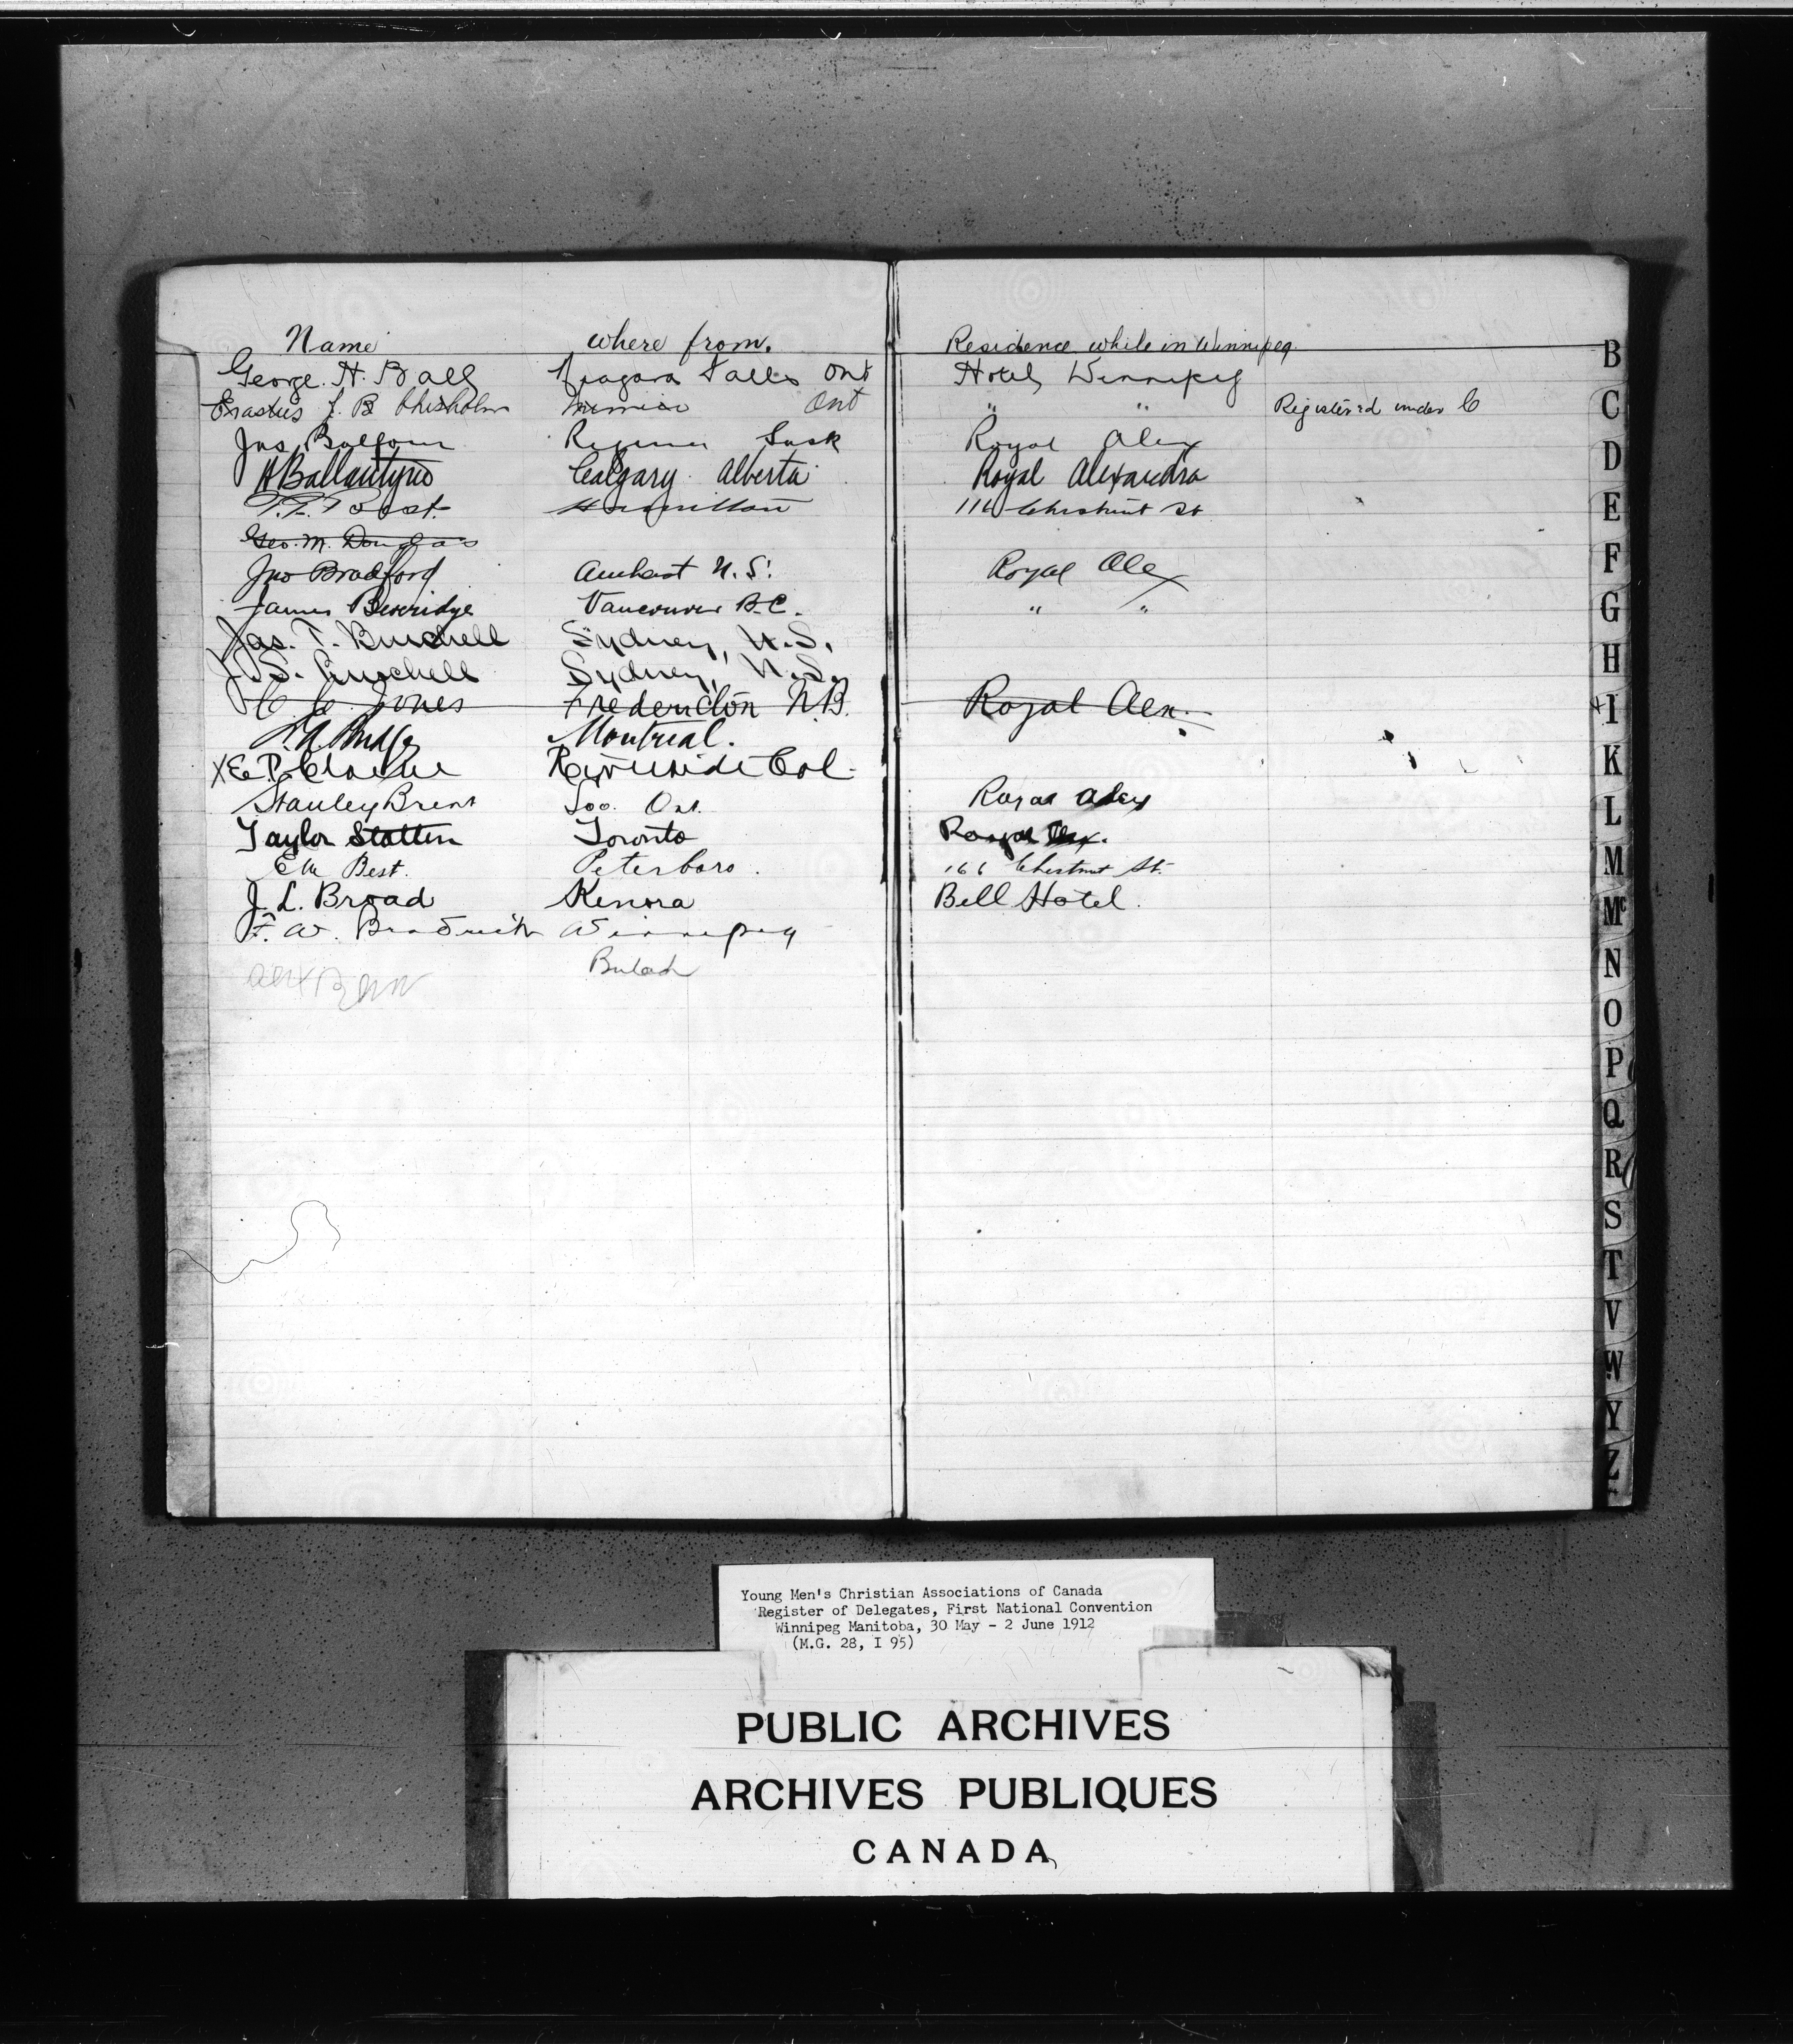 Name where from. Residence while in Winnipeg.
George. H. Ball Niagara Falls Ont Hotel, Winnipeg
Erastus J. B Chisholm Ont " " Registered under C
Jas. Balfour Regina Sask Royal Alex
A Ballantyne Calgary. Alberta. Royal Alexandra
Hamilton 116 Chestnut St
Geo. M. Douglas
Jno Bradford Amherst N.S. Royal Alex
James Beveridge Vancouver B.C. " "
Jas. T. Burchell Sydney, N.S.
J. S. Burchell Sydney, N.S.
Jones Fredericton N.B. Royal Alex.
Montreal.
X E. P. Riverside Cal.
Stanley Brent Soo. Ont. Royal Alex
Taylor Statten Toronto Royal Alex.
Best. Peterboro. 166 Chestnut St.
J. L. Broad Kenora Bell Hotel.
F. W. Brodrick Winnipeg
Beulah
B
C
D
E
F
G
H
I
K
L
M
Mc
N
O
P
Q
R
S
T
V
W
Y
Z
Young Men's Christian Associations of Canada
Register of Delegates, First National Convention
Winnipeg Manitoba, 30 May - 2 June 1912
(M.G. 28, I 95)
PUBLIC ARCHIVES
ARCHIVES PUBLIQUES
CANADA